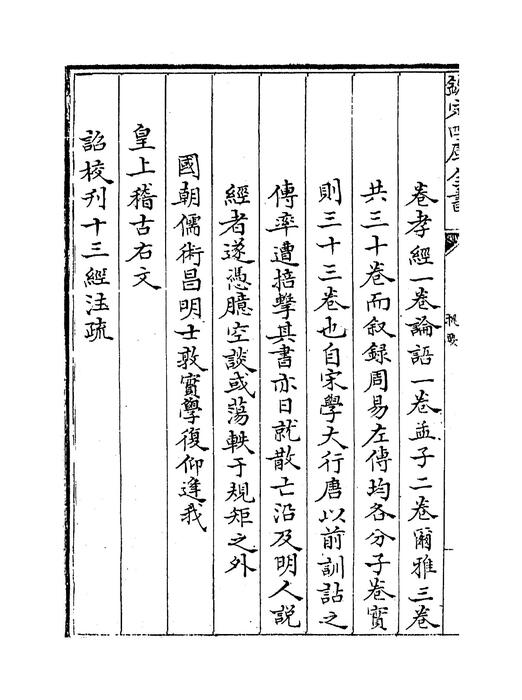 欽定四庫全書
提要
卷孝經一卷論語一卷孟子二卷爾雅三卷
共三十卷而叙録周易左傳均各分子卷實
則三十三卷也自宋學大行唐以前訓詁之
傳率遭掊擊其書亦日就散亡沿及明人説
經者遂憑臆空談或蕩軼于規矩之外
國朝儒術昌明士敦實學復仰逢我
皇上稽古右文
詔校刋十三經注疏